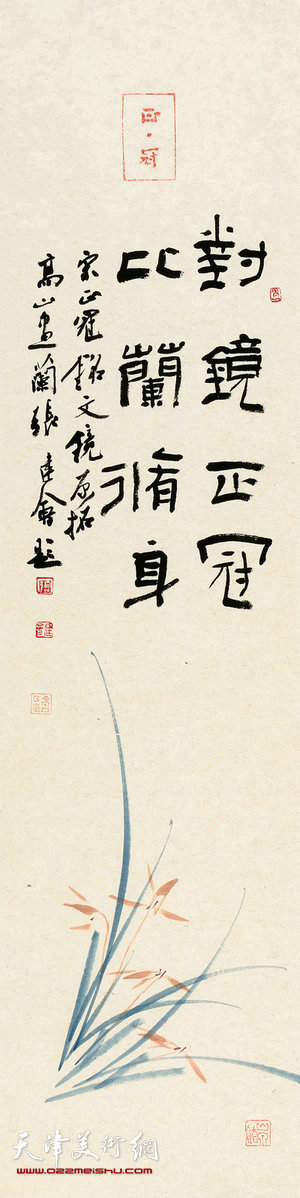 正·冠
對鏡正冠
比蘭脩身
宋正冠銘文鏡原拓
高山畫蘭張建會題
天津美術網
www.022meishu.com